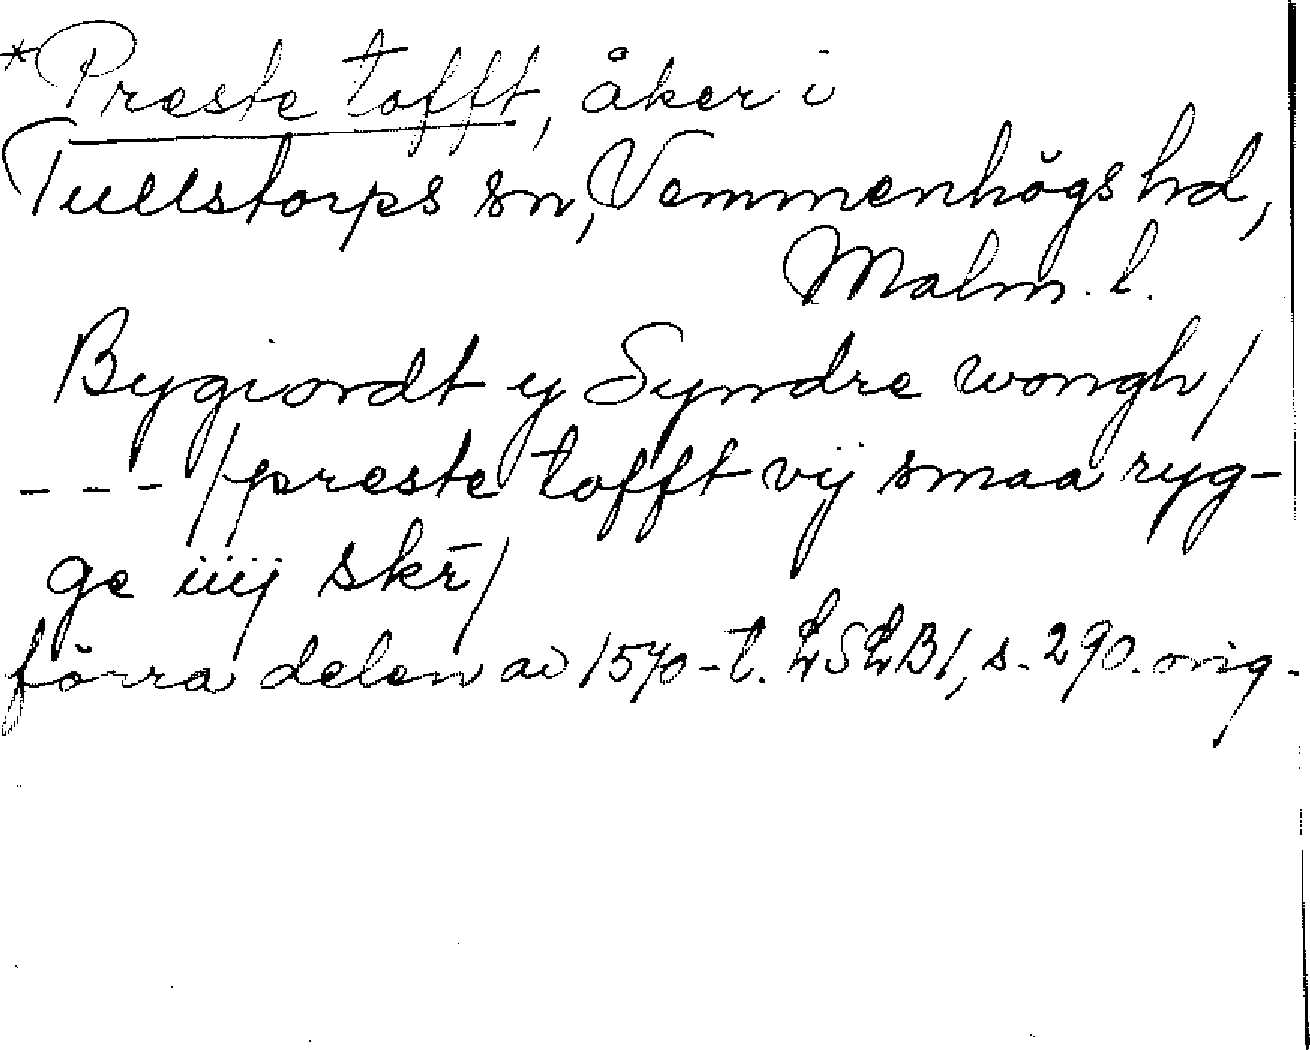 *Preste tofft, åker i
Tullstorps sn, Vemmenhögs hd,
Malm. l.
Bygiordt y Syndre wongh/
- - - /preste tofft vij smaa ryg-
ge iiij skr̄/
förra delen av 1570-t. LSLB1, s. 290. orig.